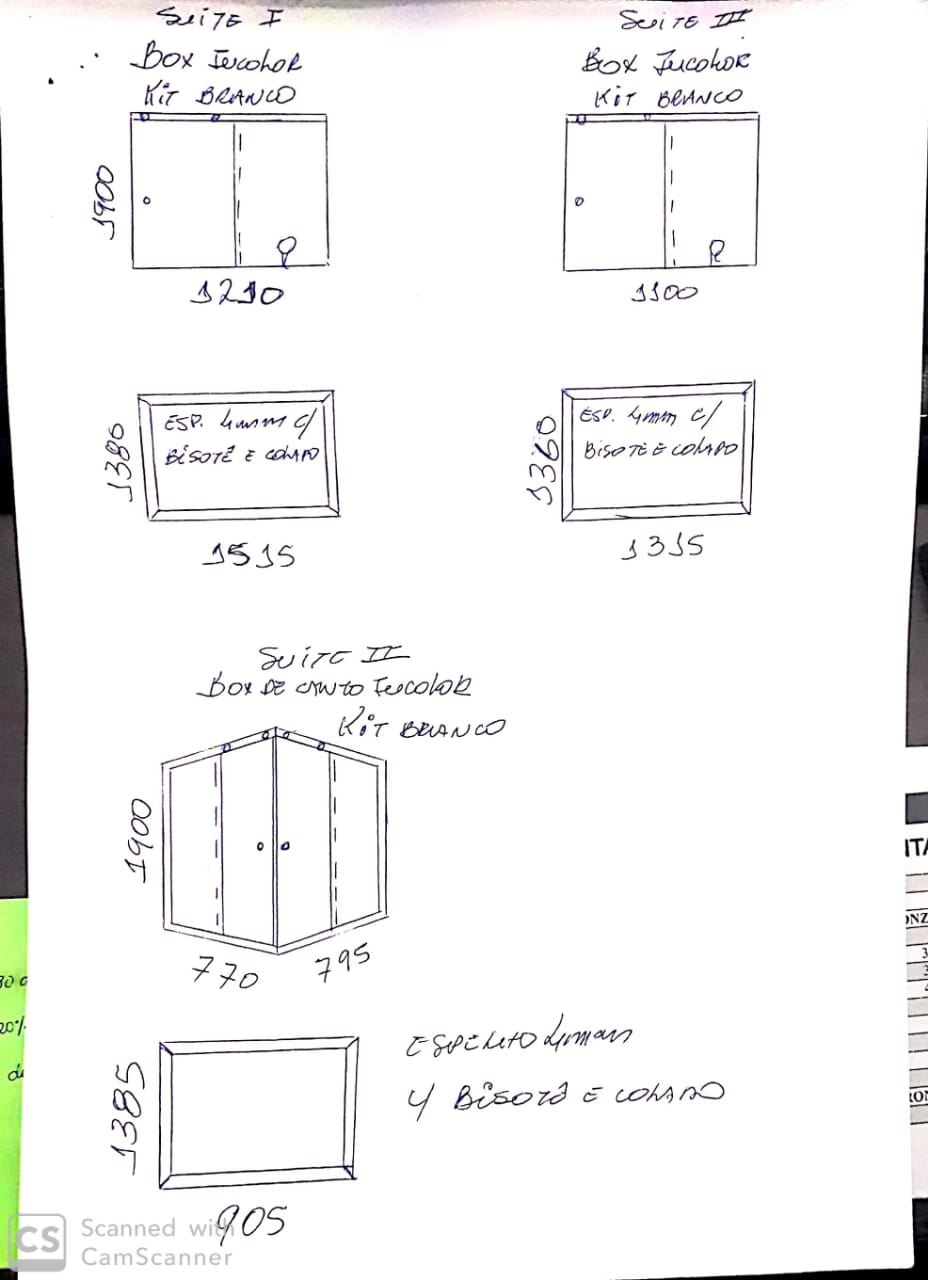 SUITE I
BOX INCOLOR
KIT BRANCO
1900
1210
SUITE III
BOX INCOLOR
KIT BRANCO
1100
1380
ESP. 4mm C/
BISOTÊ E COLADO
1515
1360
ESP. 4mm C/
BISOTE E COLADO
1315
SUITE II
BOX DE CANTO INCOLOR
KIT BRANCO
1900
770
795
1385
905
ESPELHO 4mm
C/ BISOTÊ E COLADO
20%
CS Scanned with
CamScanner